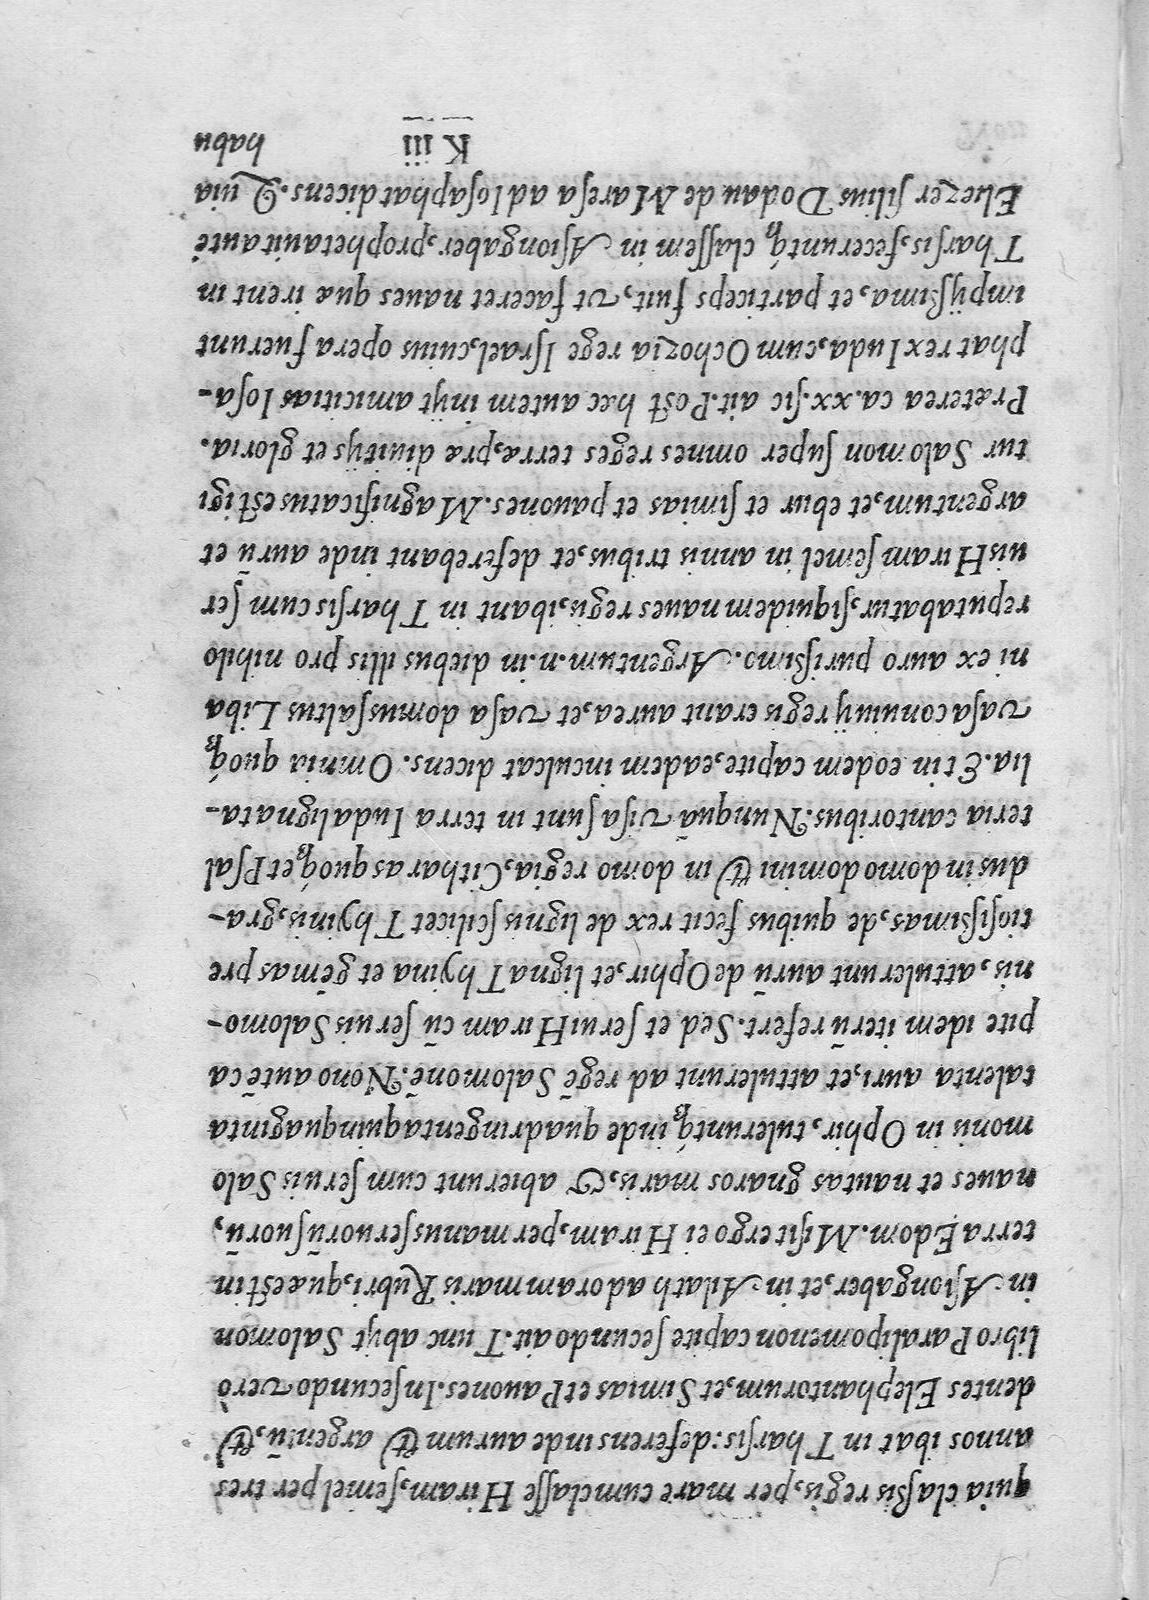 quia claßis regis, per mare cum classe Hiram, semel per tres
annos ibat in Tharsis: deferens inde aurum & argentũ, &
dentes Elephantorum, et Simias et Pauones. In secundo verò
libro Paralipomenon capite secundo ait. Tunc abijt Salomon
in Asiongaber, et in Ailath ad oram maris Rubri, quæ est in
terra Edom. Misit ergo ei Hiram, per manus seruorũ suorũ,
naues et nautas gnaros maris, & abierunt cum seruis Salo
monis in Ophir, tuleruntq́ inde quadringenta quinquaginta
talenta auri, et attulerunt ad regẽ Salomonẽ. Nono autẽ ca
pite idem iterũ refert. Sed et serui Hiram cũ seruis Salomo-
nis, attulerunt aurũ de Ophir, et ligna Thyina et gẽmas pre
tiosißimas, de quibus fecit rex de lignis scilicet Thyinis, gra-
dus in domo domini & in domo regia, Citharas quoq́ et Psal
teria cantoribus. Nunquã visa sunt in terra Iuda ligna ta-
lia. Et in eodem capite, eadem inculcat dicens. Omnia quoq́
vasa conuiuij regis erant aurea, et vasa domus saltus Liba
ni ex auro purißimo. Argentum .n. in diebus illis pro nihilo
reputabatur, siquidem naues regis, ibant in Tharsis cum ser
uis Hiram semel in annis tribus, et deferebant inde aurũ et
argentum, et ebur et simias et pauones. Magnificatus est igi
tur Salomon super omnes reges terræ, præ diuitijs et gloria.
Præterea ca. xx. sic ait. Post hæc autem inijt amicitias Iosa-
phat rex Iuda, cum Ochozia rege Israel, cuius opera fuerunt
impijßima, et particeps fuit, vt faceret naues quæ irent in
Tharsis, feceruntq́ classem in Asiongaber, prophetauit autẽ
Eliezer filius Dodau de Maresa ad Iosaphat dicens. Quia
K iii habu